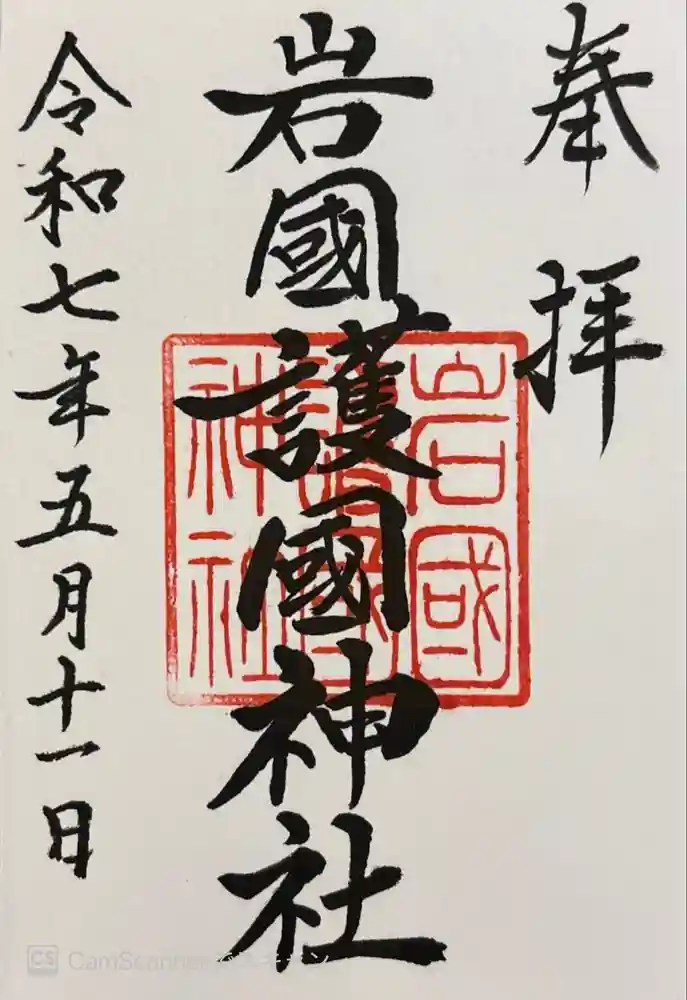 奉拝
岩國護國神社
岩國
護國
神社
令和七年五月十一日
CS CamScannerでスキャン